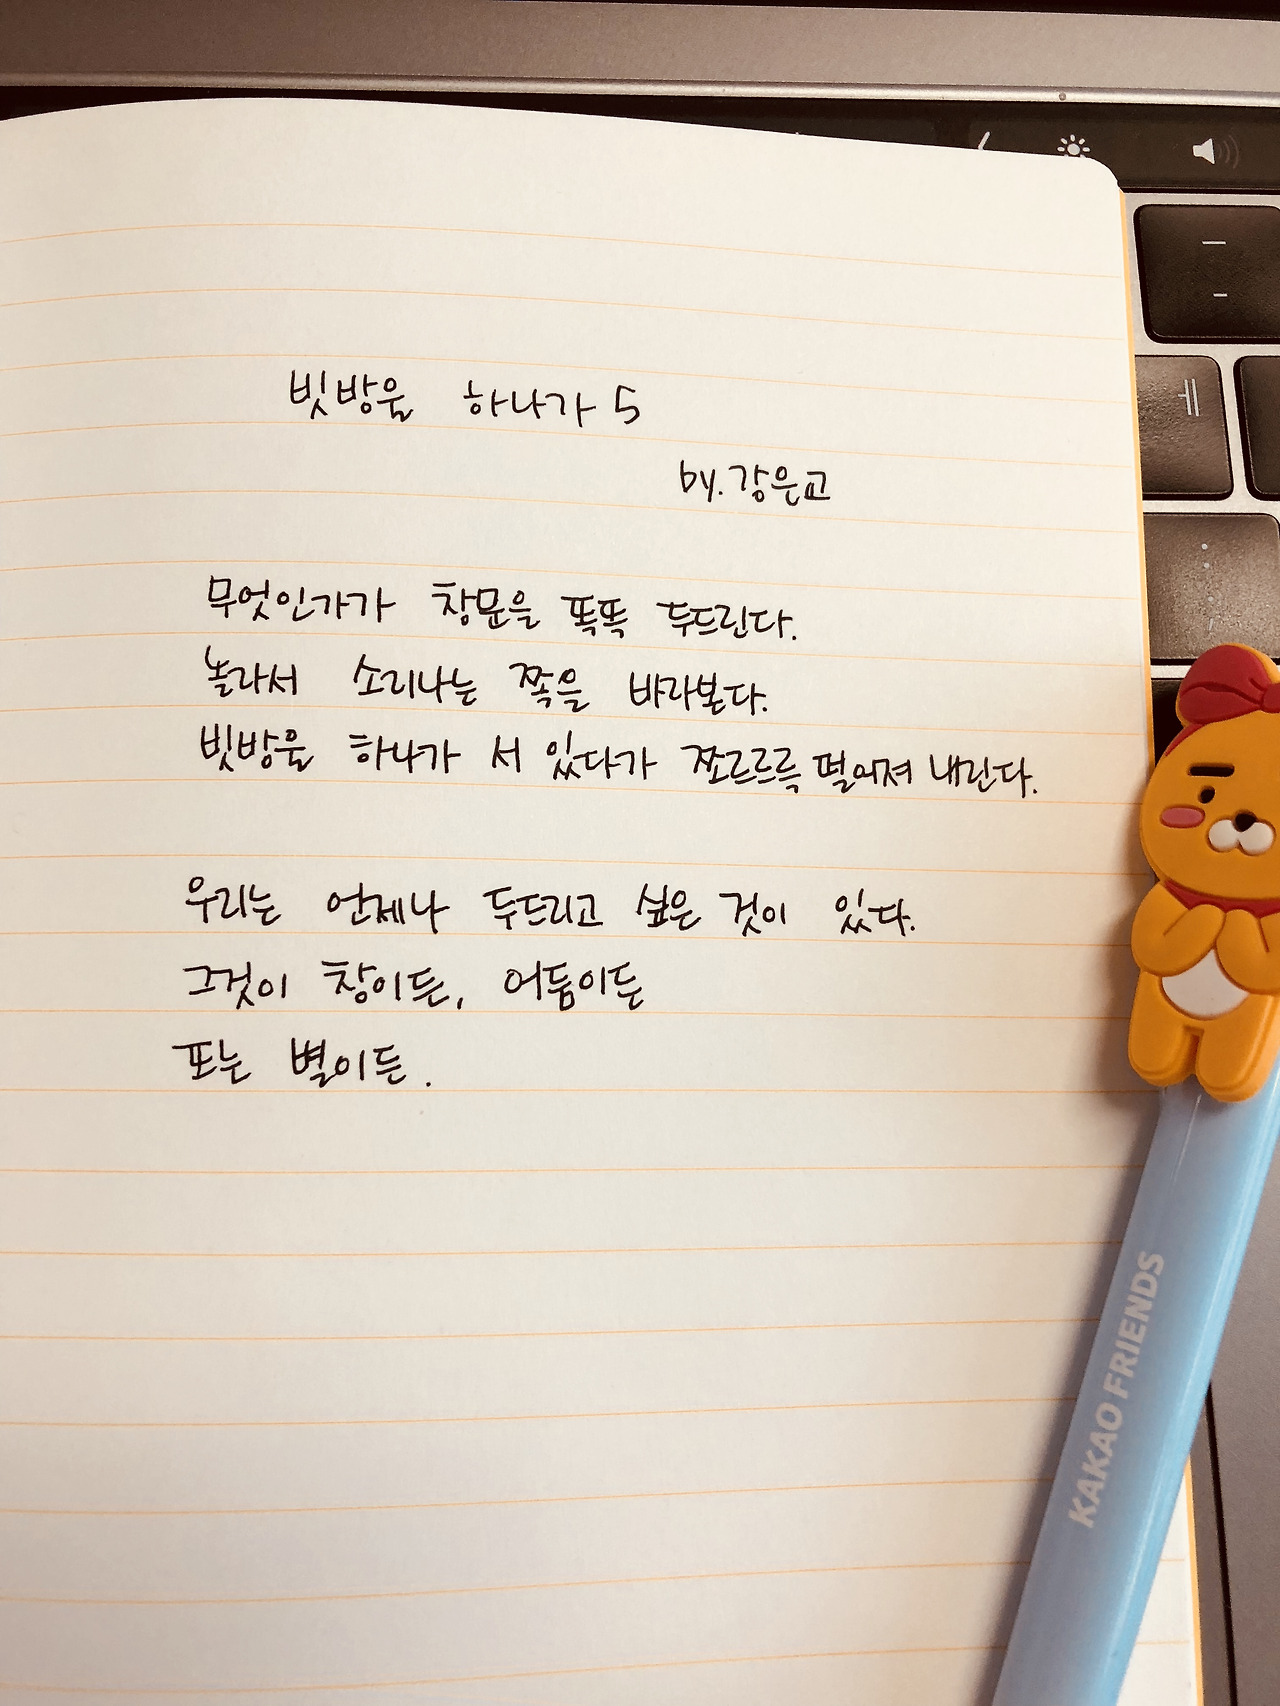 빗방울 하나가 5
by. 강은교
무엇인가가 창문을 똑똑 두드린다.
놀라서 소리나는 쪽을 바라본다.
빗방울 하나가 서 있다가 쪼르르륵 떨어져 내린다.
우리는 언제나 두드리고 싶은 것이 있다.
그것이 창이든, 어둠이든
또는 별이든.
KAKAO FRIENDS